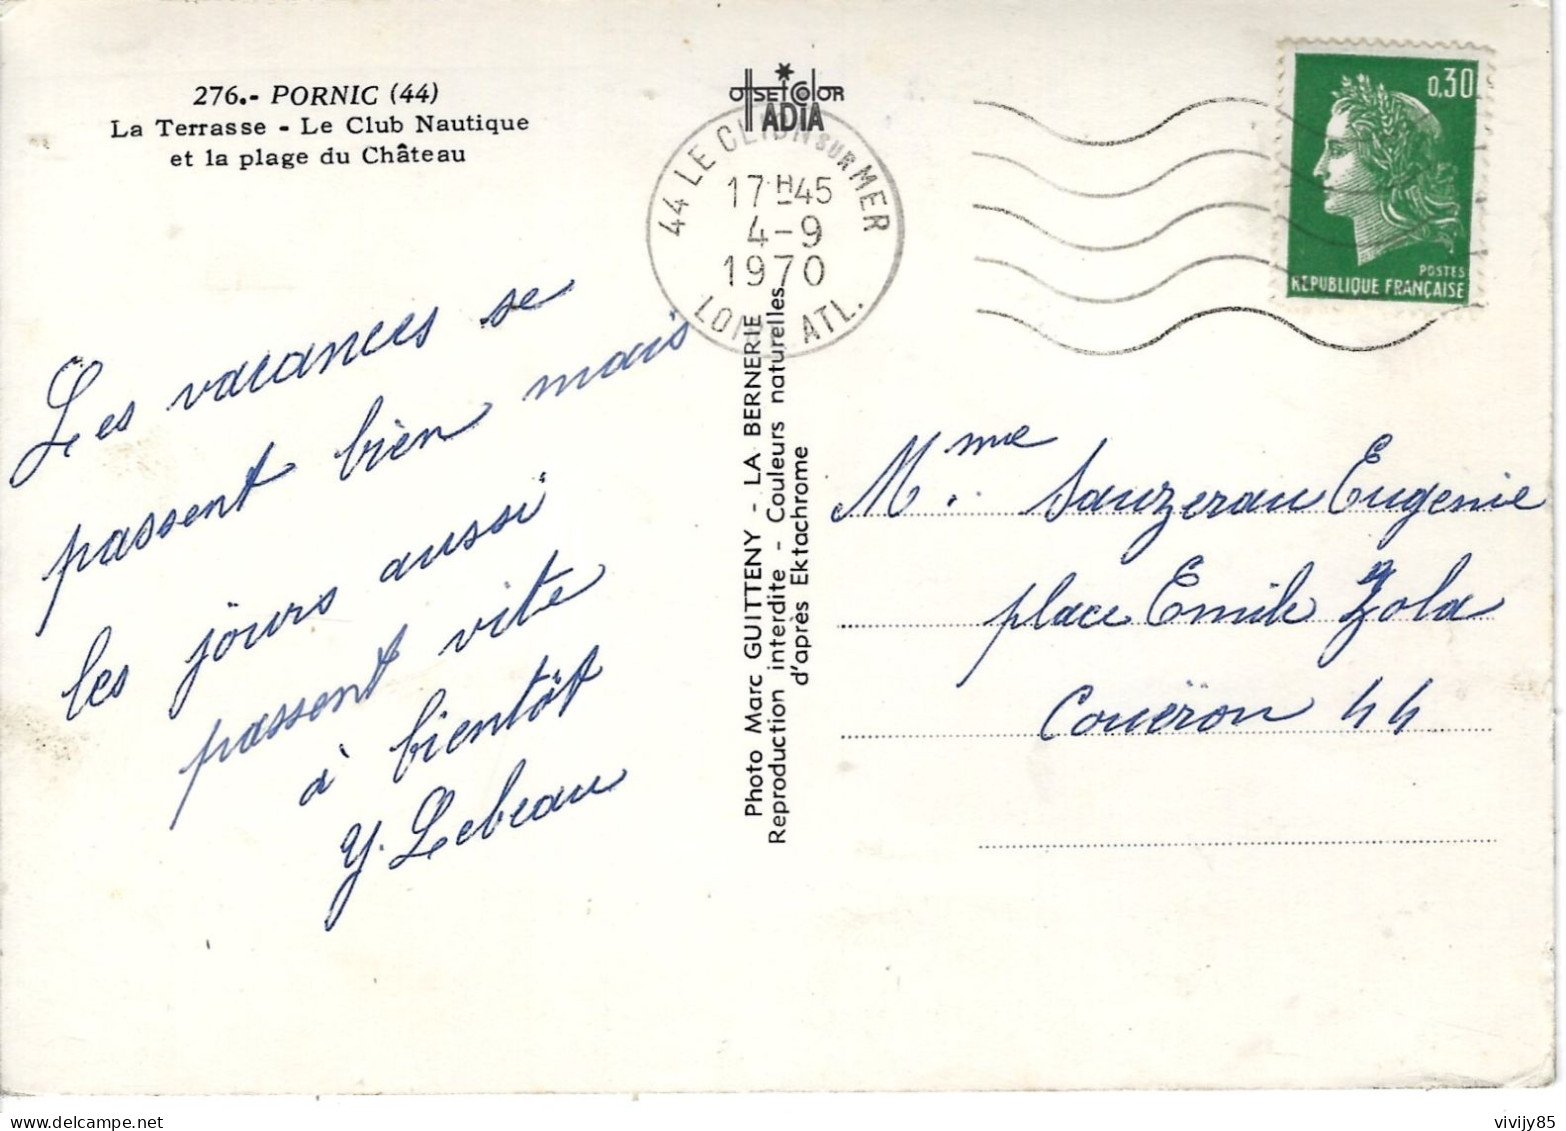 276.- PORNIC (44)
La Terrasse - Le Club Nautique
et la plage du Château
OFFSET COLOR
ADIA
44 LE CLION SUR MER
17H45
4-9
1970
LOIRE ATL.
0,30
POSTES
REPUBLIQUE FRANÇAISE
Les vacances se
passent bien mais
les jours aussi
passent vite
à bientôt
Y. Lebeau
Photo Marc GUITTENY - LA BERNERIE
Reproduction interdite - Couleurs naturelles
d'après Ektachrome
Mme Sauzereau Eugenie
place Emile Zola
Couëron 44
vivijy85